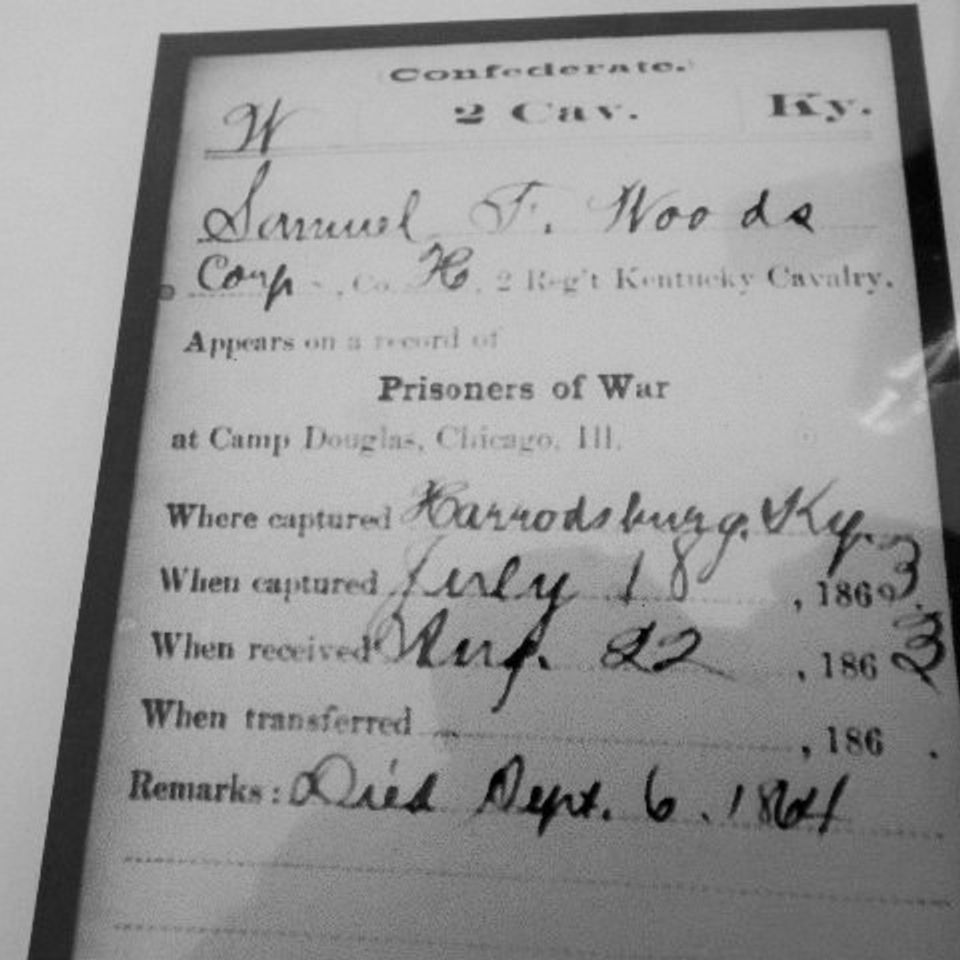 Confederate.
W 2 Cav. Ky.
Samuel F. Woods
Corp, Co. H, 2 Reg't Kentucky Cavalry.
Appears on a record of
Prisoners of War
at Camp Douglas, Chicago, Ill.
Where captured Harrodsburg, Ky.
When captured July 18, 1863.
When received Aug. 22, 1863
When transferred , 186 .
Remarks: Died Sept. 6. 1864